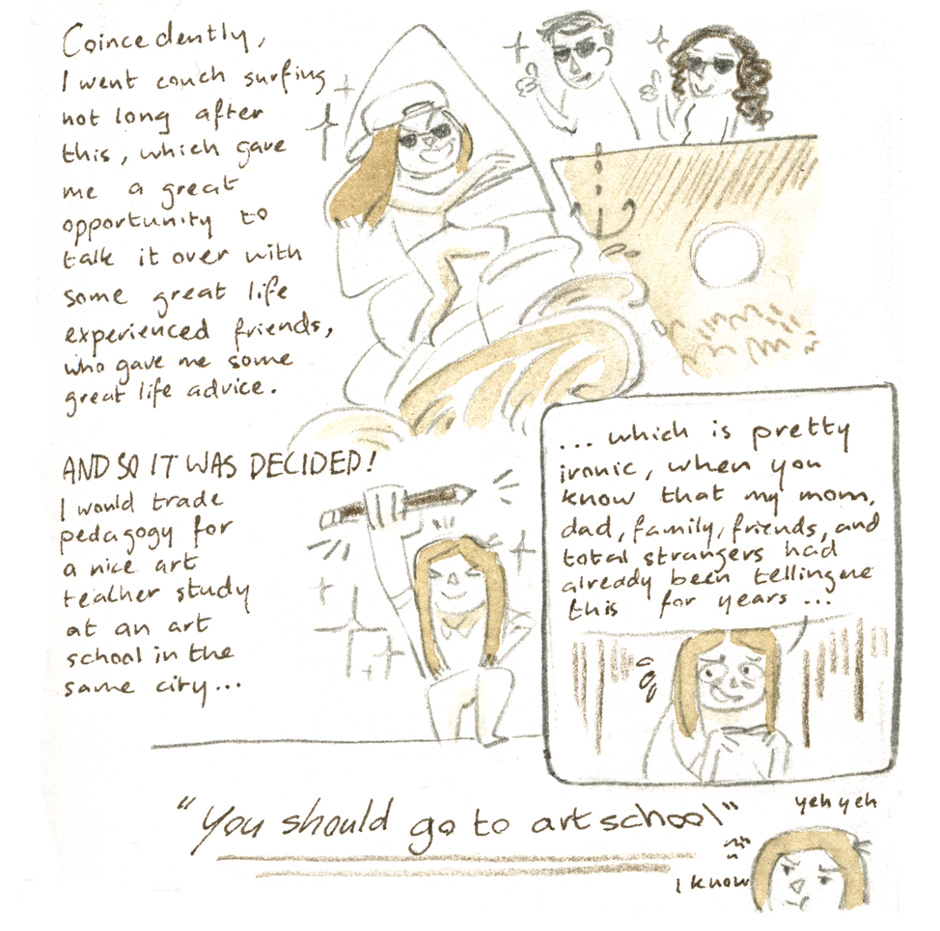 Coincedently,
I went couch surfing
not long after
this, which gave
me a great
opportunity to
talk it over with
some great life
experienced friends,
who gave me some
great life advice.
AND SO IT WAS DECIDED!
I would trade
pedagogy for
a nice art
teacher study
at an art
school in the
same city...
... which is pretty
ironic, when you
know that my mom,
dad, family, friends, and
total strangers had
already been telling me
this for years ...
"You should go to art school"
yeh yeh
I know